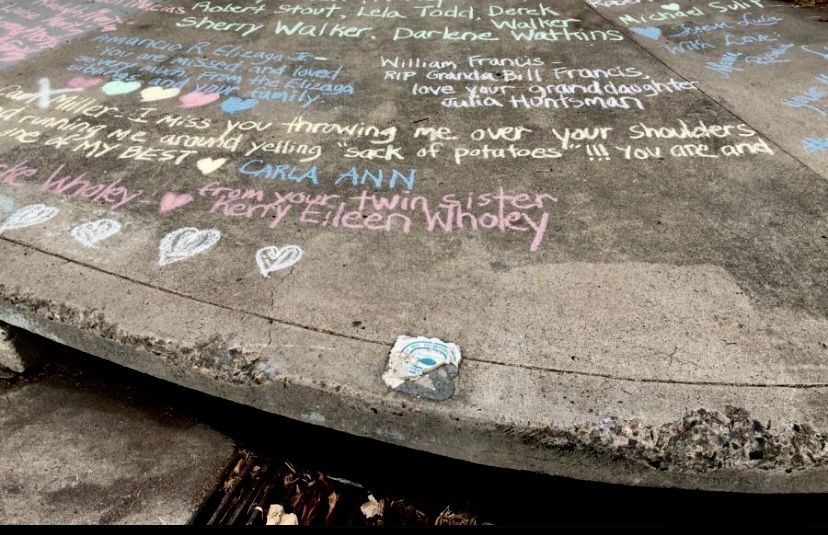 Robert Stout, Lela Todd, Derek
Walker
Sherry Walker, Darlene Watkins
Michael
Amancio R Elizaga Jr -
You are missed and loved
so very much. From My Elizaga
your family
William Francis -
RIP Granda Bill Francis,
love your granddaughter
Julia Huntsman
With Love
Miller - I miss you throwing me over your shoulders
running me around yelling "sack of potatoes"!!! You are and
one of MY BEST
CARLA ANN
Wholey - from your twin sister
Kerry Eileen Wholey